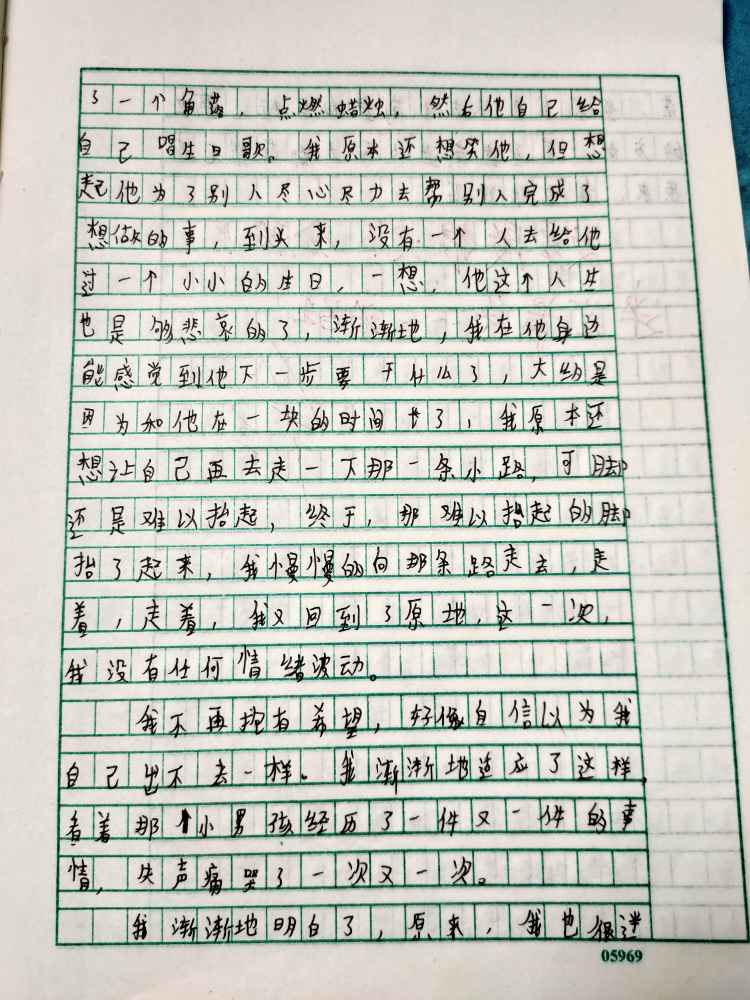 了一个角落，点燃蜡烛，然后他自己给
自己唱生日歌。我原本还想笑他，但想
起他为了别人尽心尽力去帮别人完成了
想做的事，到头来，没有一个人去给他
过一个小小的生日，一想，他这个人生
也是够悲哀的了，渐渐地，我在他身边
能感觉到他下一步要干什么了，大约是
因为和他在一块的时间长了，我原本还
想让自己再去走一下那一条小路，可脚
还是难以抬起，终于，那难以抬起的脚
抬了起来，我慢慢的向那条路走去，走
着，走着，我又回到了原地，这一次，
我没有任何情绪波动。
我不再抱有希望，好像自信以为我
自己出不去一样。我渐渐地适应了这样，
看着那个小男孩经历了一件又一件的事
情，失声痛哭了一次又一次。
我渐渐地明白了，原来，我也很迷
05969